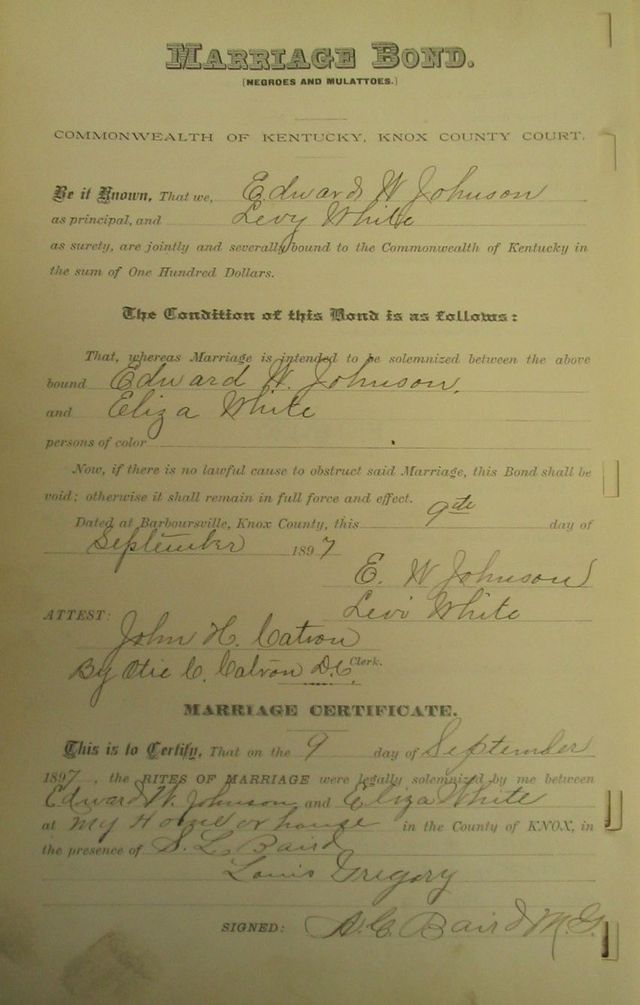 MARRIAGE BOND.
[NEGROES AND MULATTOES.]
COMMONWEALTH OF KENTUCKY, KNOX COUNTY COURT.
Be it Known, That we, Edward W Johnson
as principal, and Levy White
as surety, are jointly and severally bound to the Commonwealth of Kentucky in
the sum of One Hundred Dollars.
The Condition of this Bond is as follows:
That, whereas Marriage is intended to be solemnized between the above
bound Edward W. Johnson,
and Eliza White
persons of color
Now, if there is no lawful cause to obstruct said Marriage, this Bond shall be
void; otherwise it shall remain in full force and effect.
Dated at Barboursville, Knox County, this 9th day of
September 1897
E. W Johnson
Levi White
ATTEST:
John H. Catron
By Otie C. Catron D.C. Clerk.
MARRIAGE CERTIFICATE.
This is to Certify, That on the 9 day of September
1897, the RITES OF MARRIAGE were legally solemnized by me between
Edward W. Johnson and Eliza White
at my Home or house in the County of KNOX, in
the presence of S. L. Baird
Louis Gregory
SIGNED: A. C. Baird M. G.